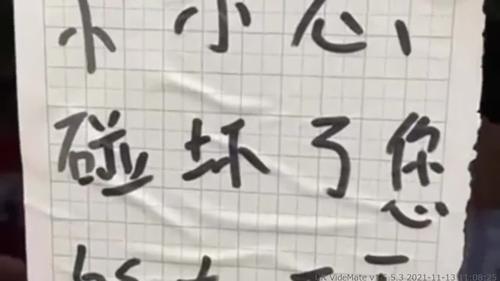 不小心，
碰坏了您
VideMate v1.5.5.3 2021-11-13 11:08:25